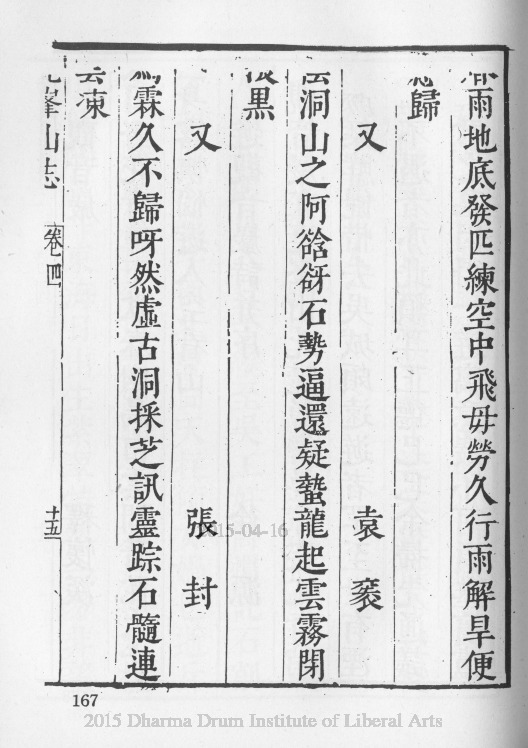 雨地底發匹練空中飛毋勞久行雨解旱便
歸
又 袁袠
洞山之阿谽谺石勢逼還疑蟄龍起雲霧閉
黑
又 張封
霖久不歸呀然虛古洞採芝訊靈踪石髓連
雲凍
峯山志 卷四 十五
167
2015-04-16
2015 Dharma Drum Institute of Liberal Arts